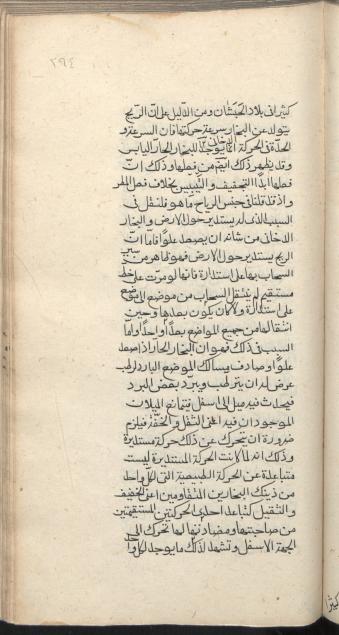 ٢٩٤
كثيرا في بلاد الحبشان ومن الدليل على ان الريح
يتولد عن البخار سرعة حركتها فان السرعة و
الحدة في الحركة انما يوجد للبخار الحار اليابس
الدخاني
وقد يظهر ذلك ايضا من فعلها وذلك ان
فعلها ابدا التجفيف والتيبيس بخلاف فعل المطر
واذ قد قلنا في جنس الرياح ما هو فلنقل في
السبب الذي له يستدير حول الارض والبخار
الدخاني من شانه ان يصعد علوا فاما ان
الريح يستدير حول الارض فهو ظاهر من سير
السحاب بها على استدارة فانها لو مرت على خط
مستقيم لم ينتقل السحاب من موضع الى موضع
على استدارة ولا كان يكون بعدها وحين
انتقالها من جميع المواضع بعدا واحدا واما
السبب في ذلك فهو ان البخار الحار اذا صعد
علوا وصادف مسالك الموضع البارد الرطب
عرض له ان يترطب ويبرد بعض البرد
فيحدث فيه ميل الى اسفل فتمانع الميلان
الموجودان فيه اعني الثقل والخفة فيلزم
ضرورة ان يتحرك عن ذلك حركة مستديرة
وذلك انه لما كانت الحركة المستديرة ليست
متباعدة عن الحركة الطبيعية التي لكل واحد
من ذينك البخارين المتقاومين اعني الخفيف
والثقيل كتباعد احدى الحركتين المستقيمتين
من صاحبتها ومضادتها لها تحرك الى
الجهة الاسفل وتشهد لذلك ما يوجد لكل واحد
كثيرا